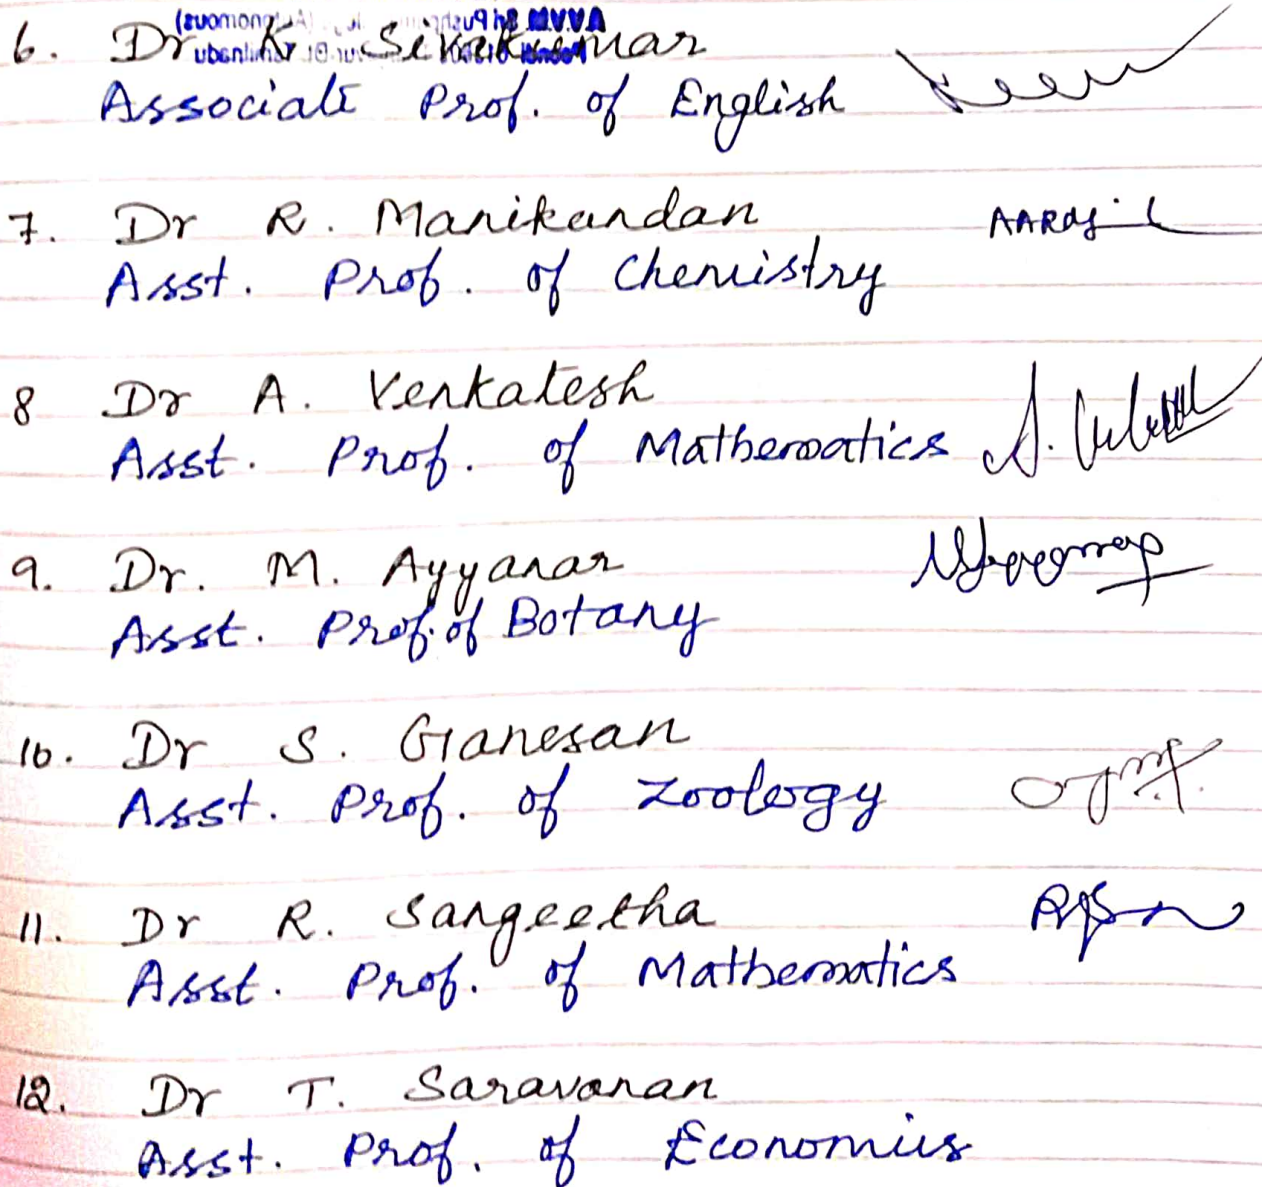 6. Dr K. Sivakumar
Associate Prof. of English
7. Dr R. Manikandan
Asst. Prof. of Chemistry
8 Dr A. Venkatesh
Asst. Prof. of Mathematics
9. Dr. M. Ayyanar
Asst. Prof. of Botany
10. Dr S. Ganesan
Asst. Prof. of Zoology
11. Dr R. Sangeetha
Asst. Prof. of Mathematics
12. Dr T. Saravanan
Asst. Prof. of Economics